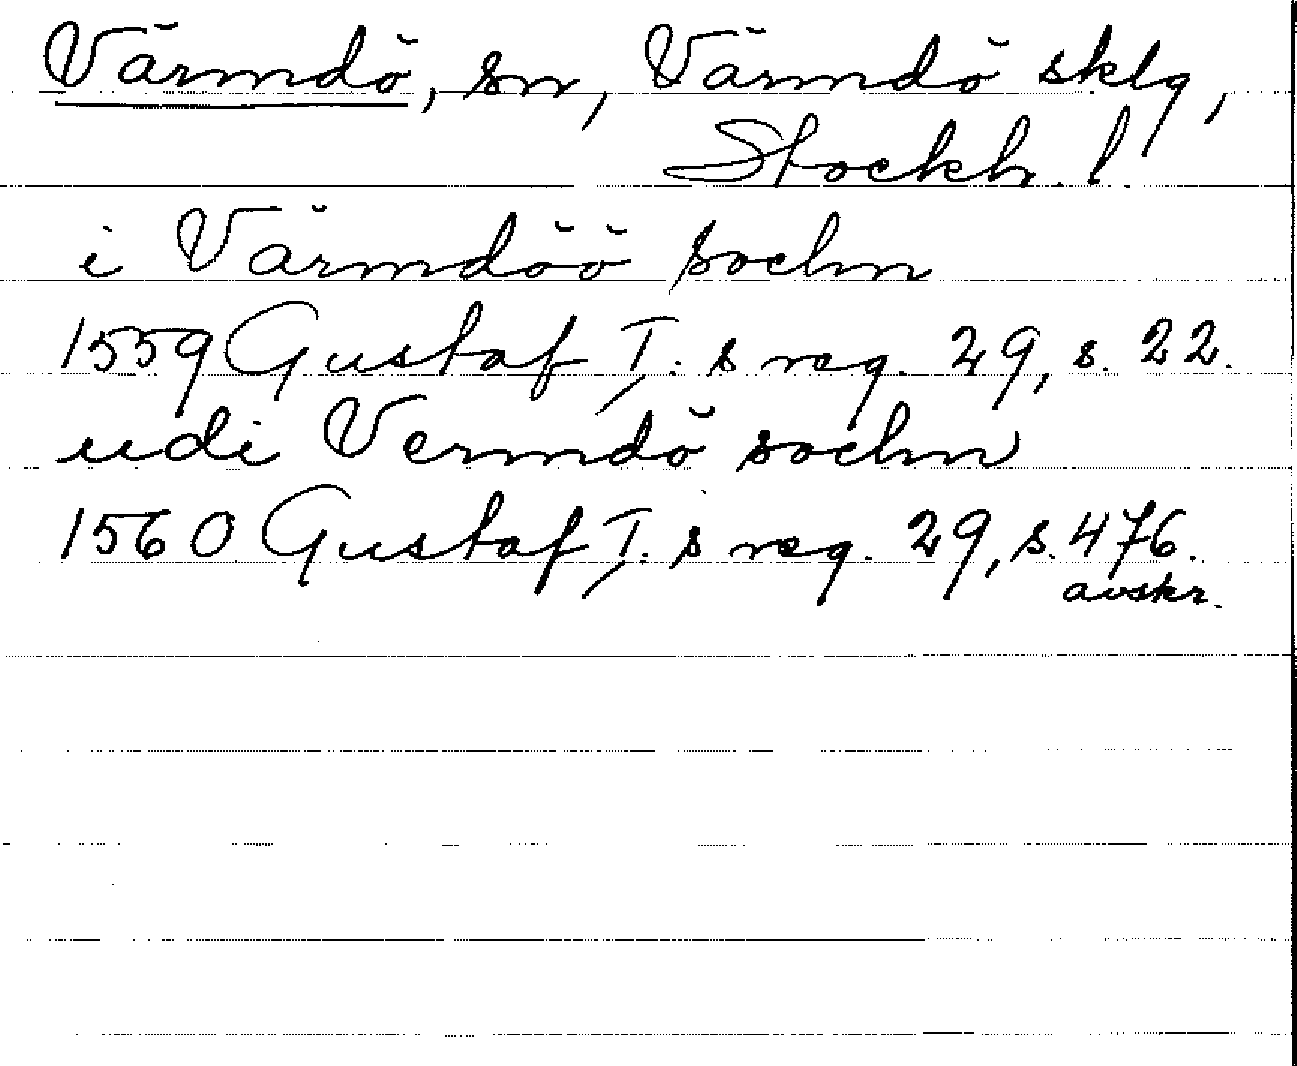 Värmdö, sn, Värmdö sklg,
Stockh. l.
i Värmdöö sochn
1559 Gustaf I:s reg. 29, s. 22.
udi Vermdö sochn
1560 Gustaf I:s reg. 29, s. 476.
avskr.